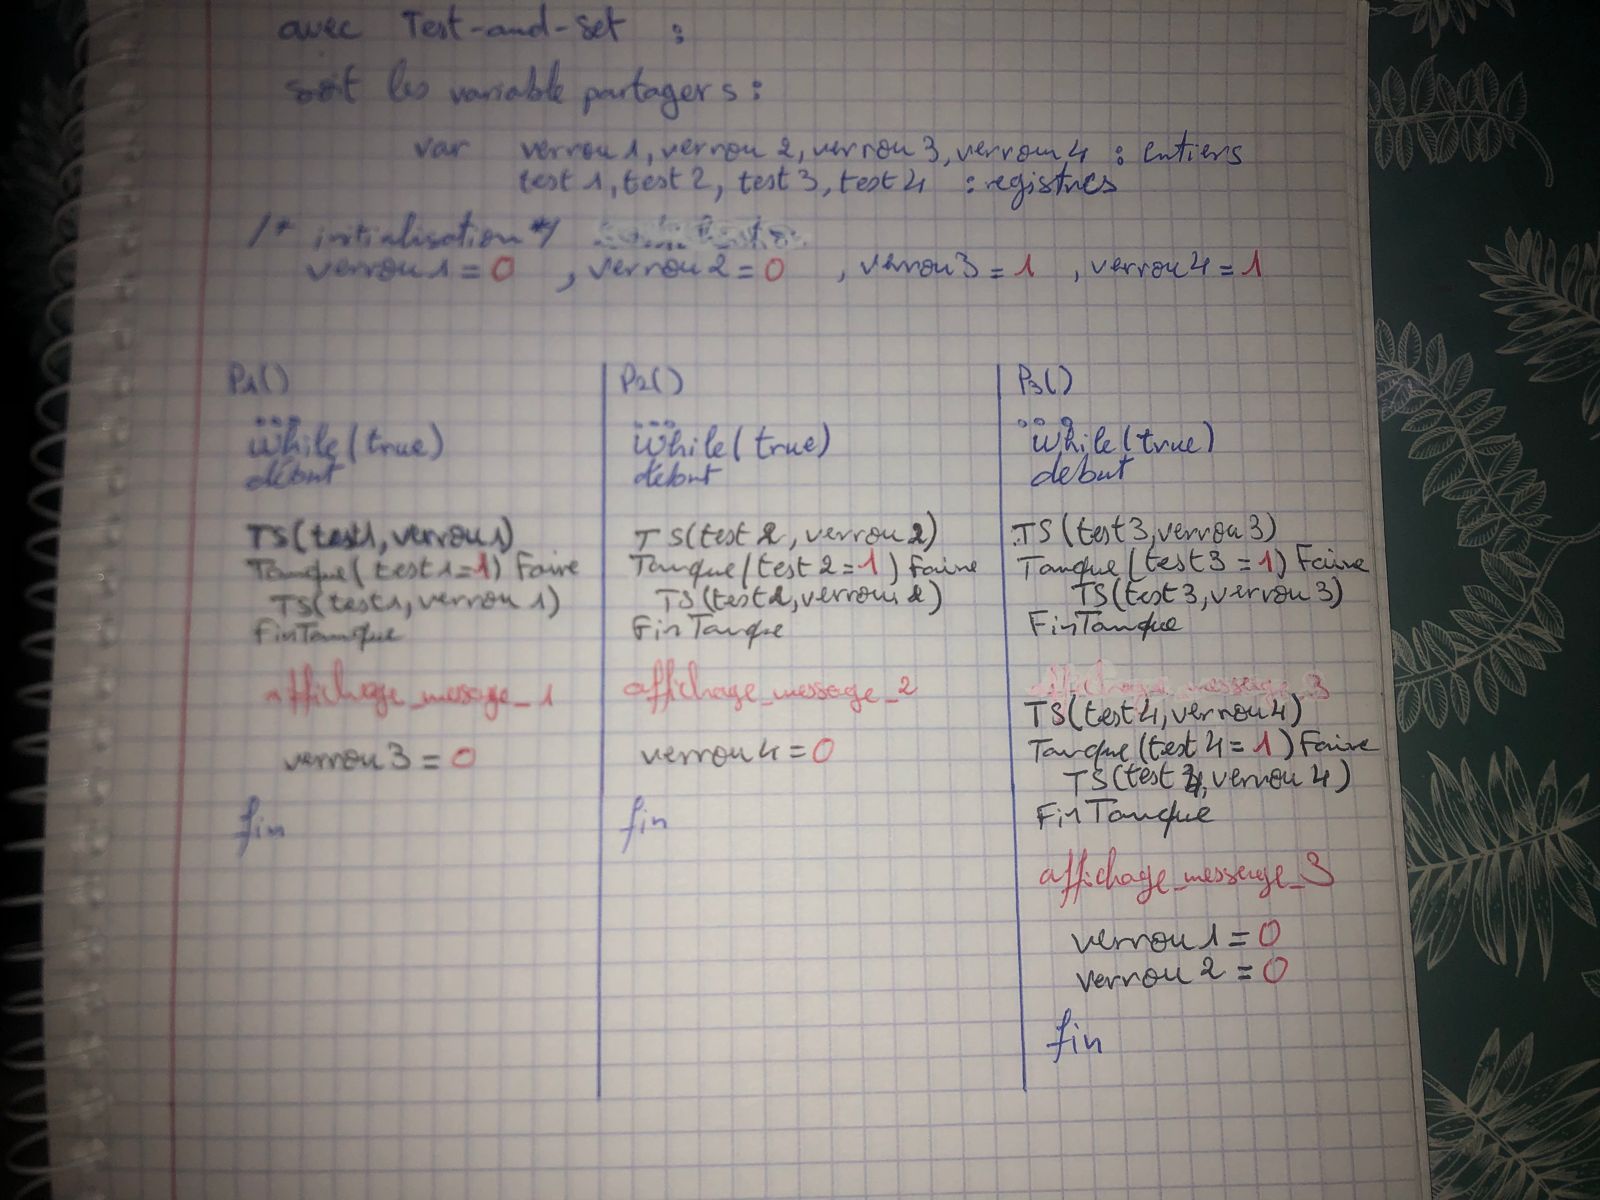 avec Test-and-set :
soit les variable partagers :
var verrou 1, verrou 2, verrou 3, verrou 4 : entiers
test 1, test 2, test 3, test 4 : registres
/* initialisation */
verrou 1 = 0 , verrou 2 = 0 , verrou 3 = 1 , verrou 4 = 1
P1()
...
While (true)
début
TS(test1, verrou1)
Tanque ( test 1 = 1) Faire
TS(test1, verrou 1)
FinTanque
affichage_message_1
verrou 3 = 0
fin
P2()
...
While ( true)
début
TS(test 2, verrou 2)
Tanque (test 2 = 1) Faire
TS(test2, verrou 2)
FinTanque
affichage_message_2
verrou 4 = 0
fin
P3()
...
While (true)
debut
TS (test 3, verrou 3)
Tanque (test 3 = 1) Faire
TS(test 3, verrou 3)
FinTanque
affichage_message_3
TS(test 4, verrou 4)
Tanque (test 4 = 1) Faire
TS(test 4, verrou 4)
FinTanque
affichage_message_3
verrou 1 = 0
verrou 2 = 0
fin